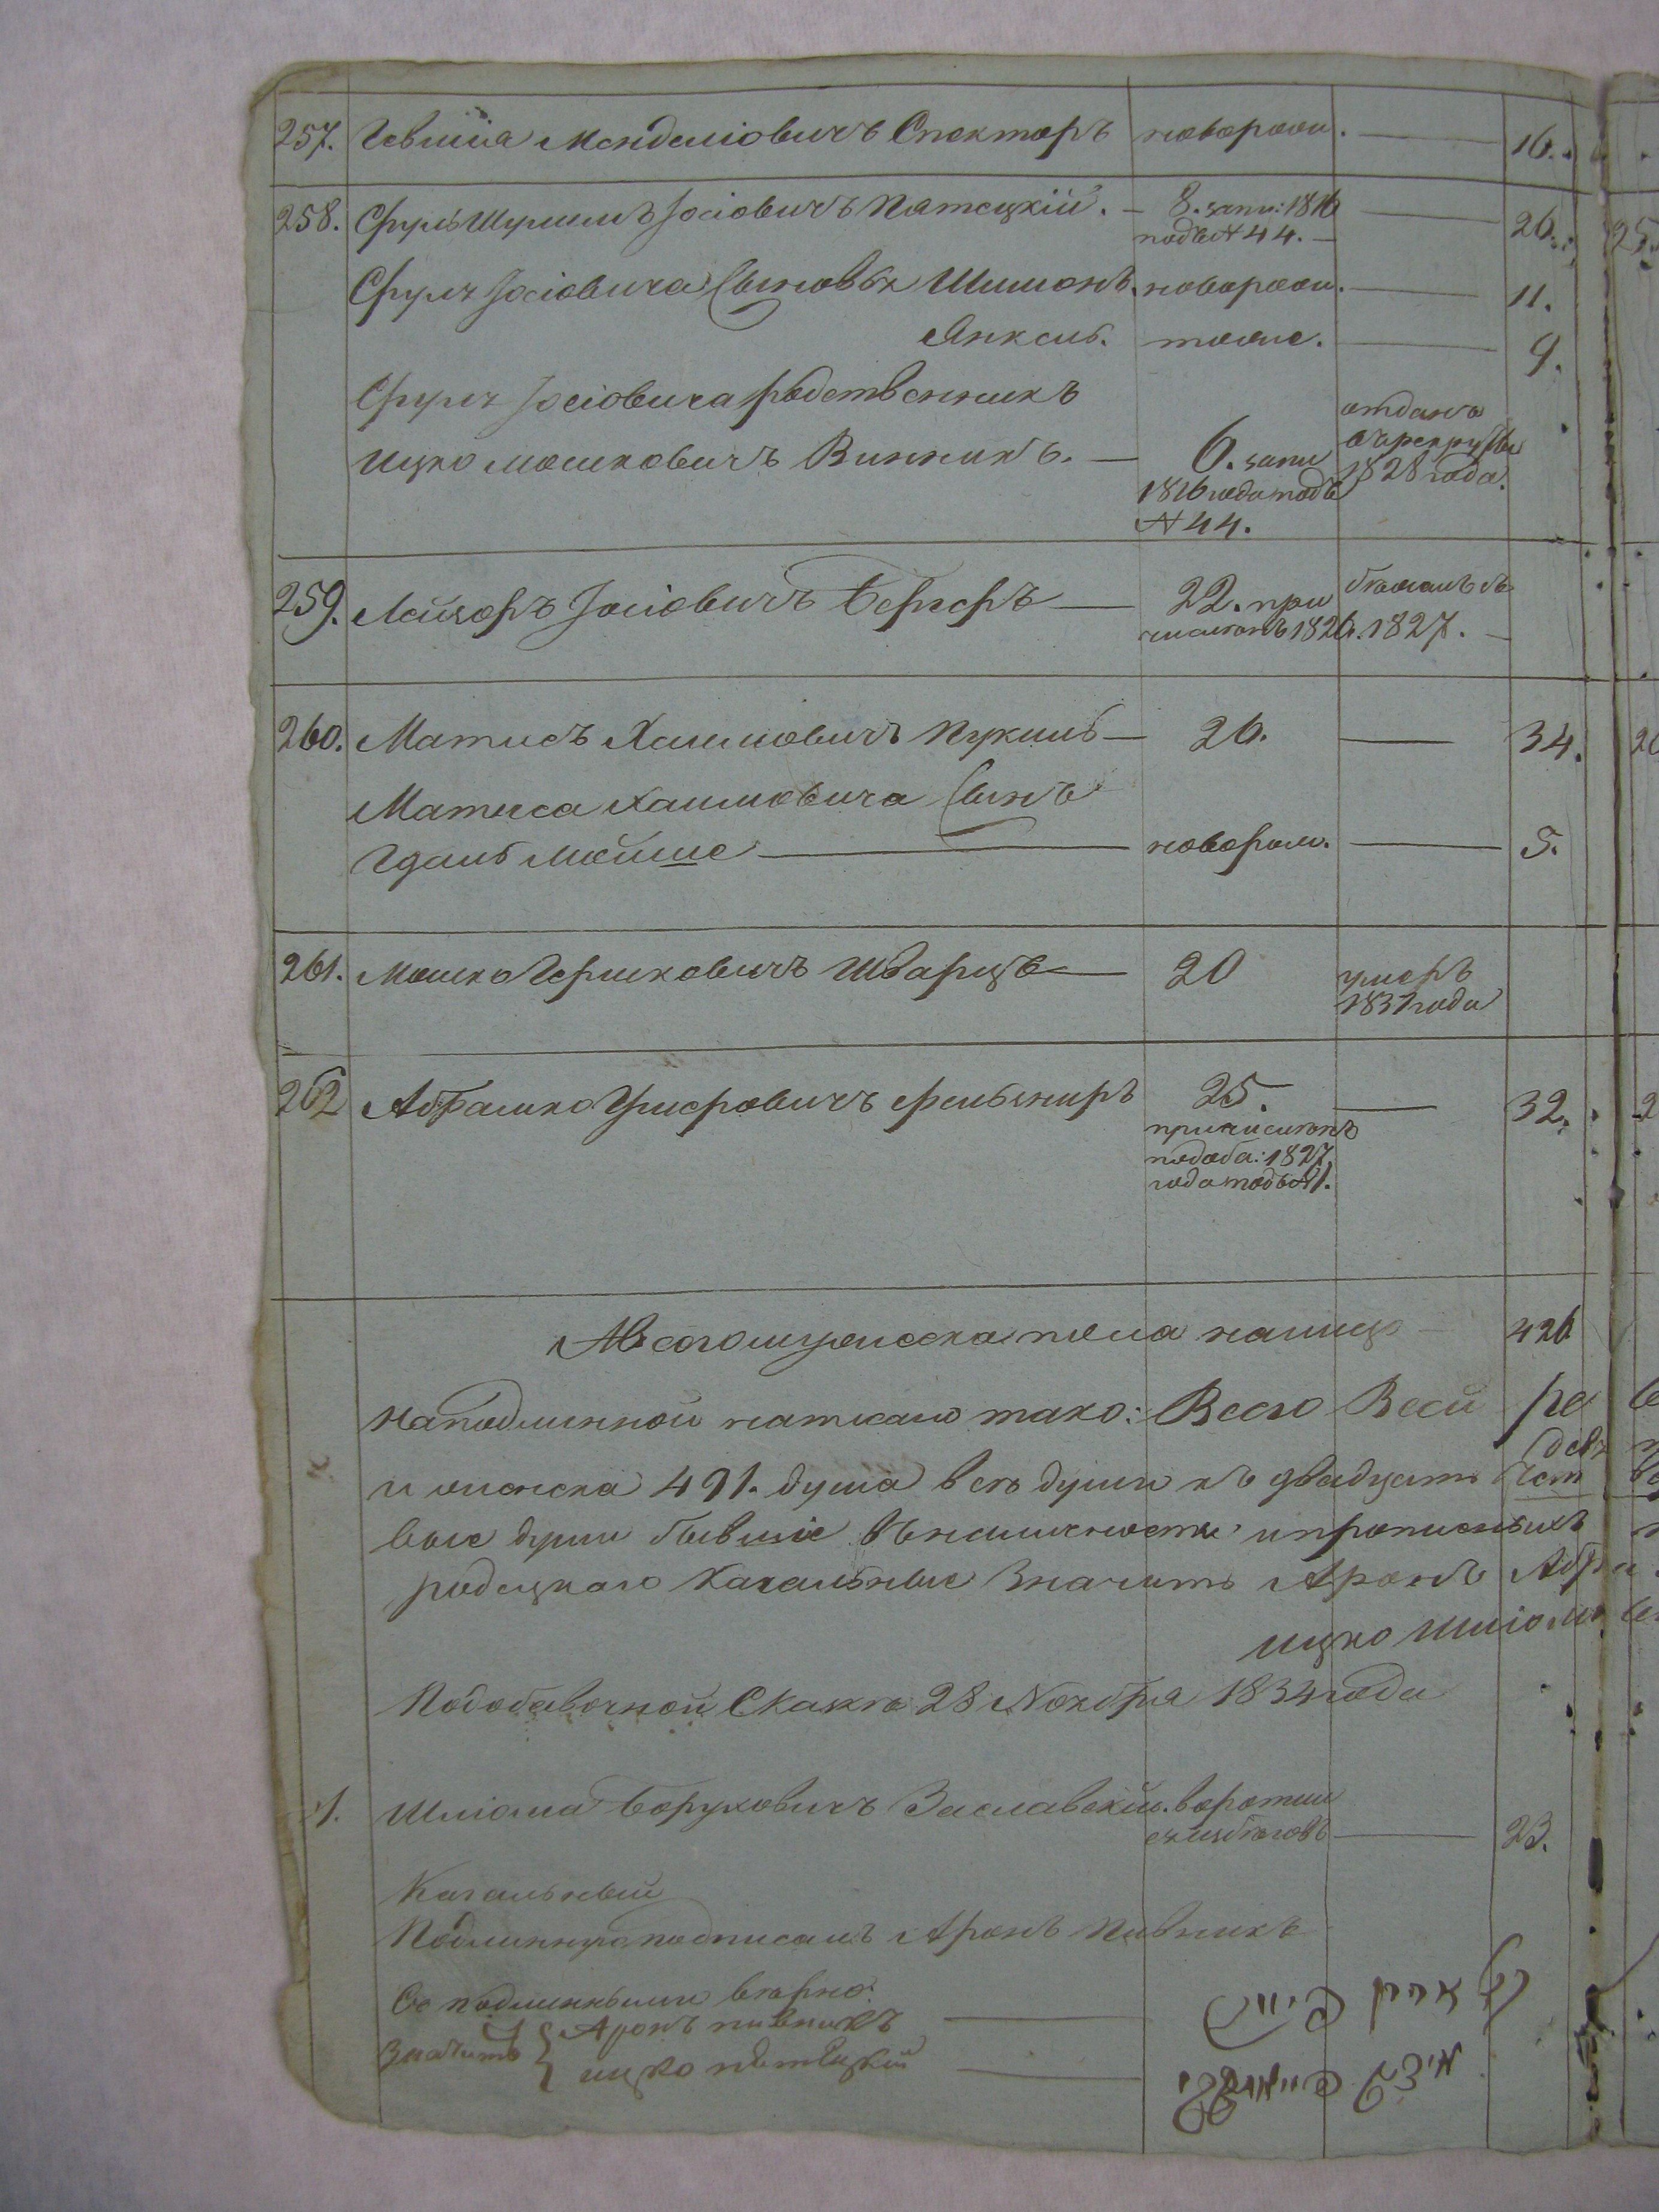 257. Гевшія Менделіовичъ Спекторъ новорожн. — 16.
258. Сруль Шулимъ Іосіовичъ Пятецкій. — 8. запи: 1816 — 26.
подъ № 44. —
Сруля Іосіовича Сыновья Шимонъ. новорожн. — 11.
Янкель. тоже. — 9.
Сруля Іосіовича родственникъ
Ицко Мошковичъ Винникъ. — 6. запи
1816 года подъ
№ 44.
отданъ
в рекруты
1828 года.
259. Лейзоръ Іосіовичъ Бергеръ — 22. при
численъ 1826.
бежалъ въ
1827. —
260. Матисъ Хаимовичъ Пукшъ — 26. — 34.
Матиса Хаимовича Сынъ
Гдаль Мойше — новорож. — 5.
261. Мошко Гершковичъ Шварцъ — 20
умеръ
1831 года
262 Абрашко Ушеровичъ 25. — 32.
причисленъ
по доба: 1827
года подъ № 1.
А всего мужеска пола налицо 426
На подлинной написано тако: Всего Всей ре
и женска 491. душа всъ души къ двадцать
выя души бывшіе въ наличности и прописныхъ
родецкаго Кагальные Значитъ Аронъ Абра
Ицко Шліомо
По добавочной Сказкъ 28 Ноября 1834 года
1. Шліома Боруховичъ Заславскій. воротил
ся изъ беговъ — 23.
Кагальный
Подлинную подписалъ Аронъ Пивникъ
Съ подлиннымъ върно:
Значитъ { Аронъ Пивникъ —
Ицко Пятецкій —